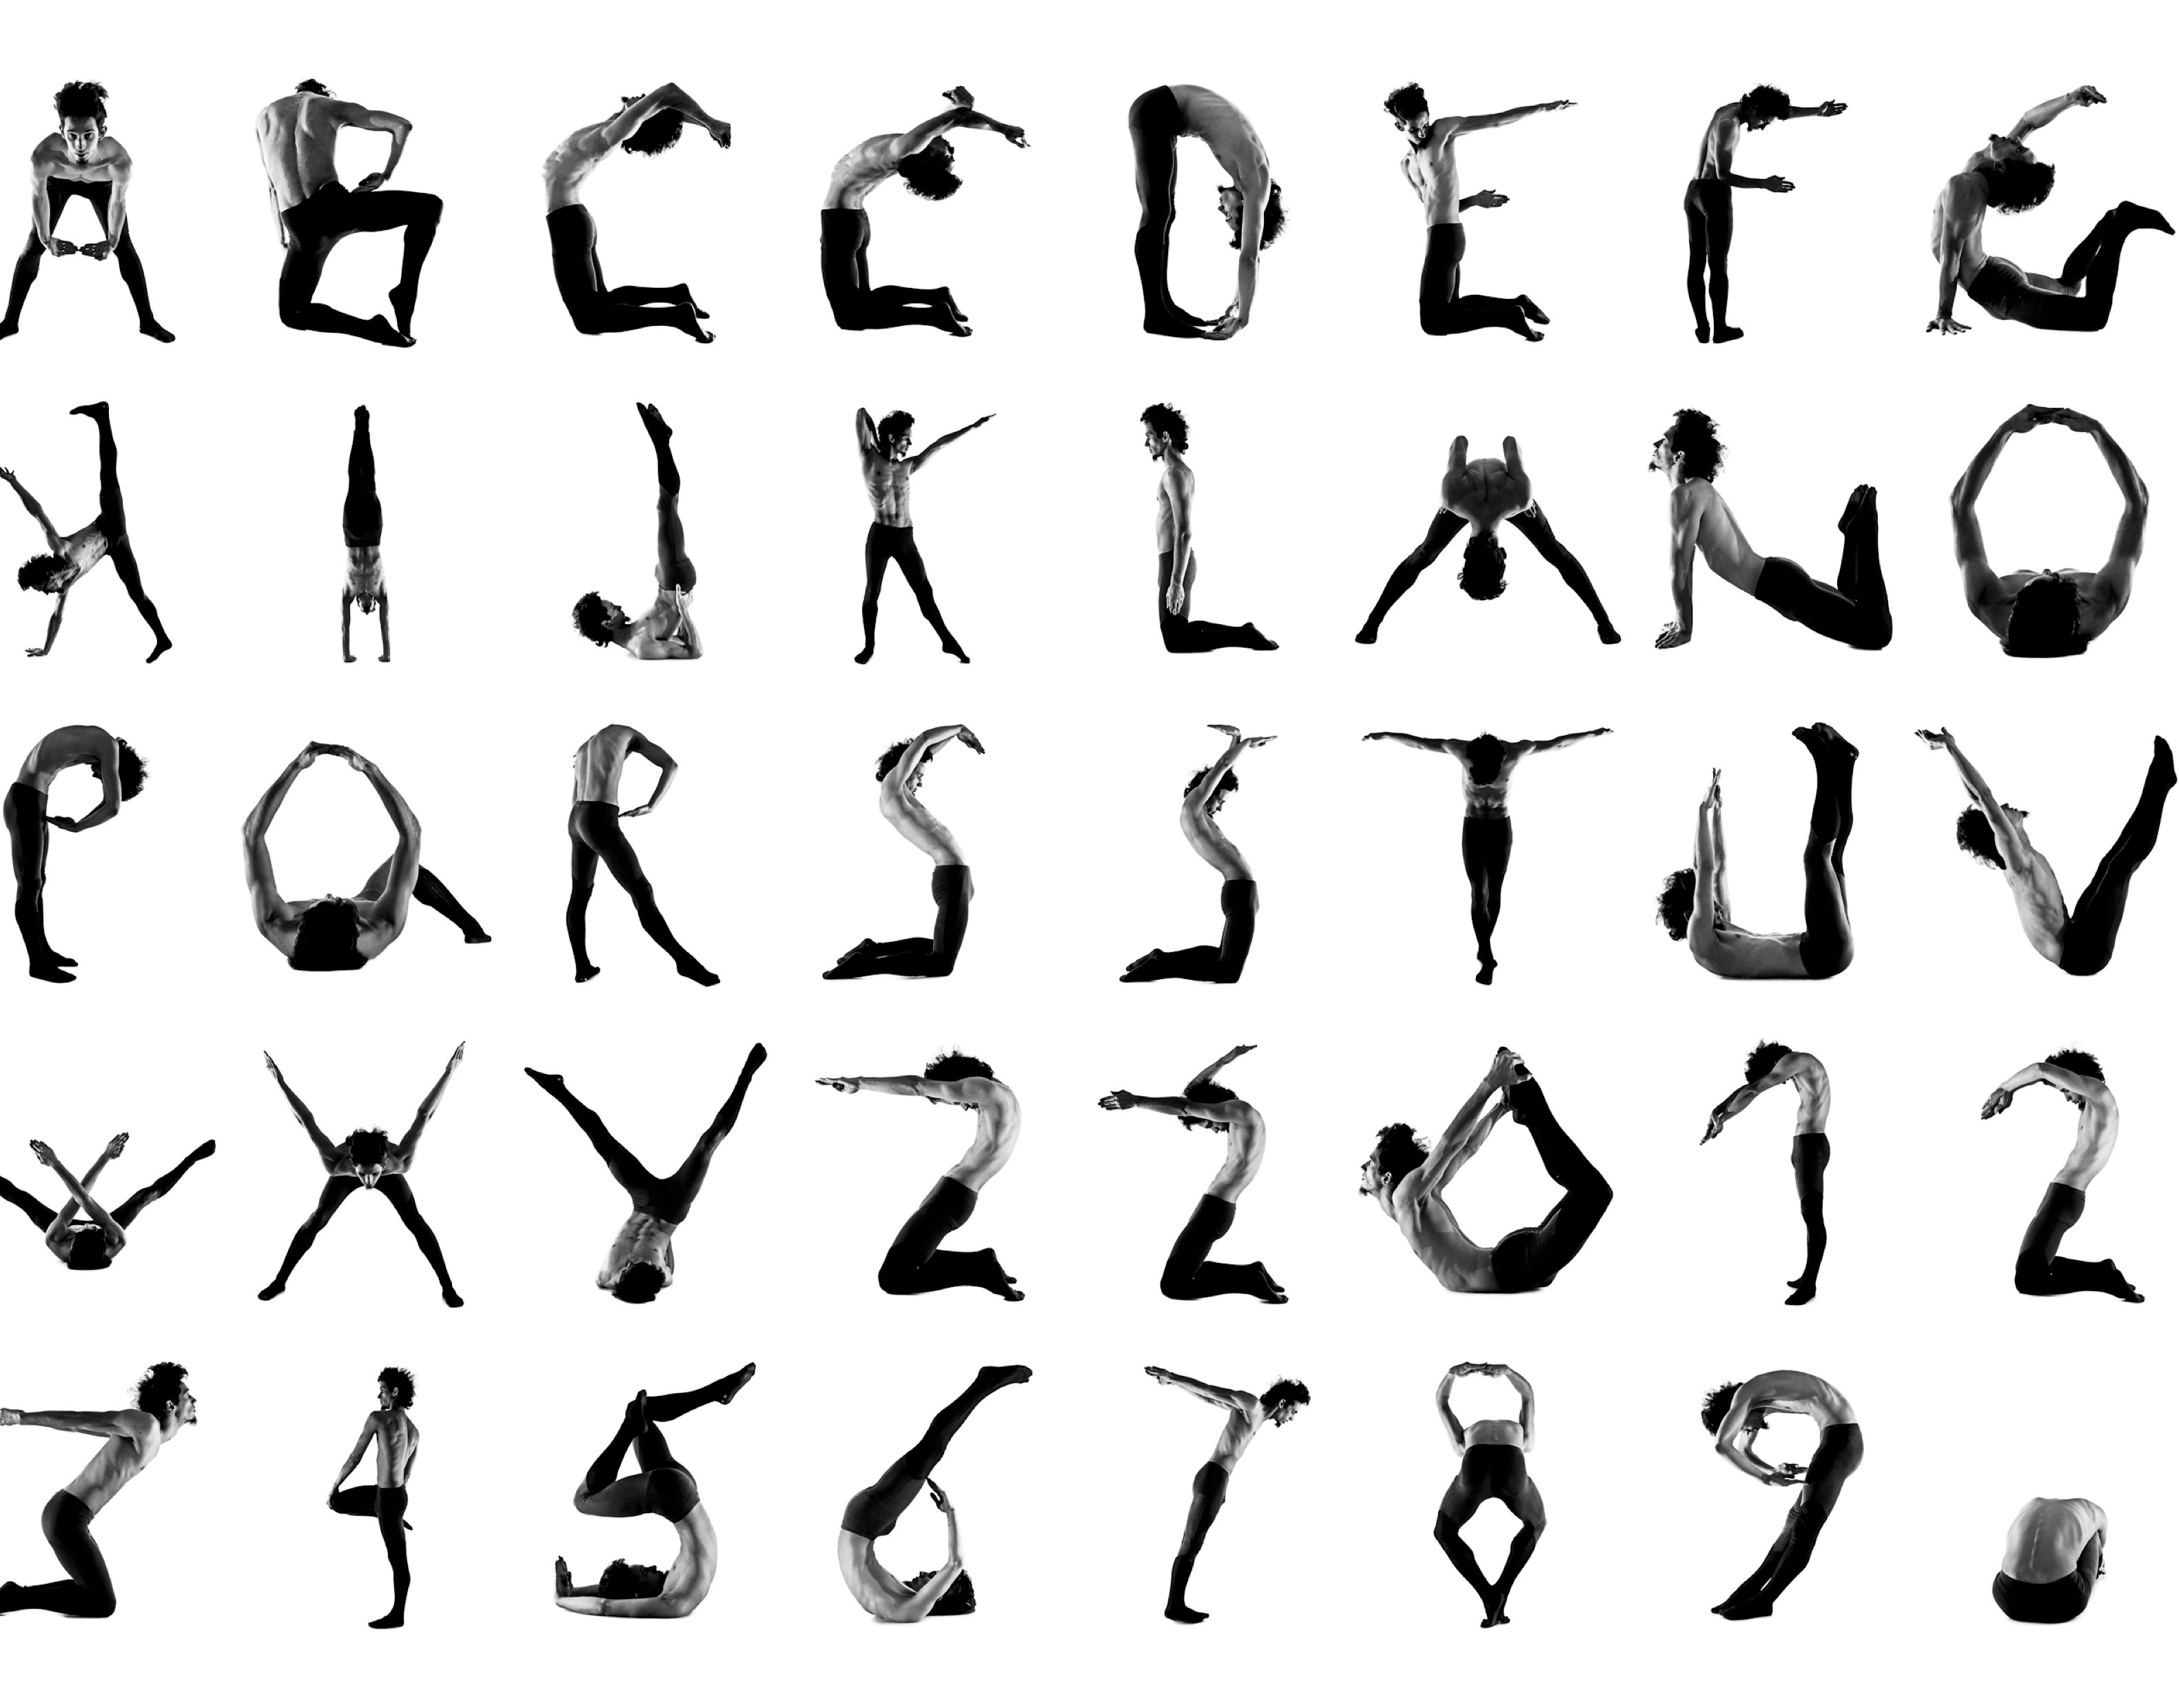 A B C Č D E F G
H I J K L M N O
P Q R S Š T U V
W X Y Z Ž 0 1 2
3 4 5 6 7 8 9 .